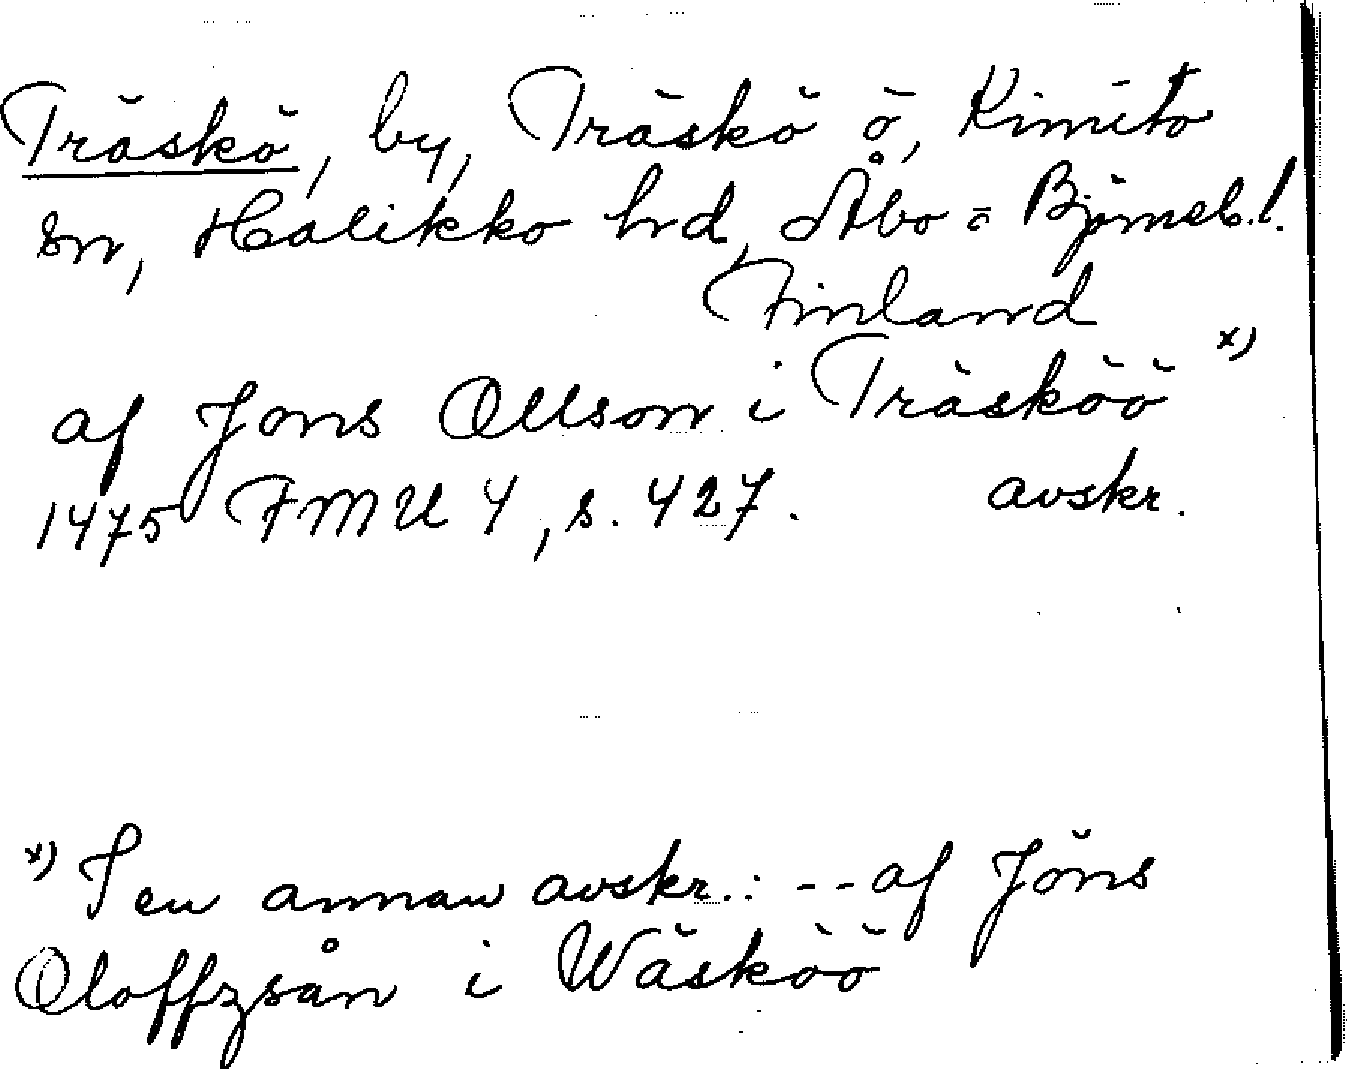 Träskö, by, Träskö ö, Kimito
sn, Halikko hrd, Åbo = Björneb. l.
Finland
af Jons Ollson i Träsköö x)
1475 FMU 4, s. 427. avskr.
x) I en annan avskr.: -- af Jöns
Oloffzsån i Wäsköö